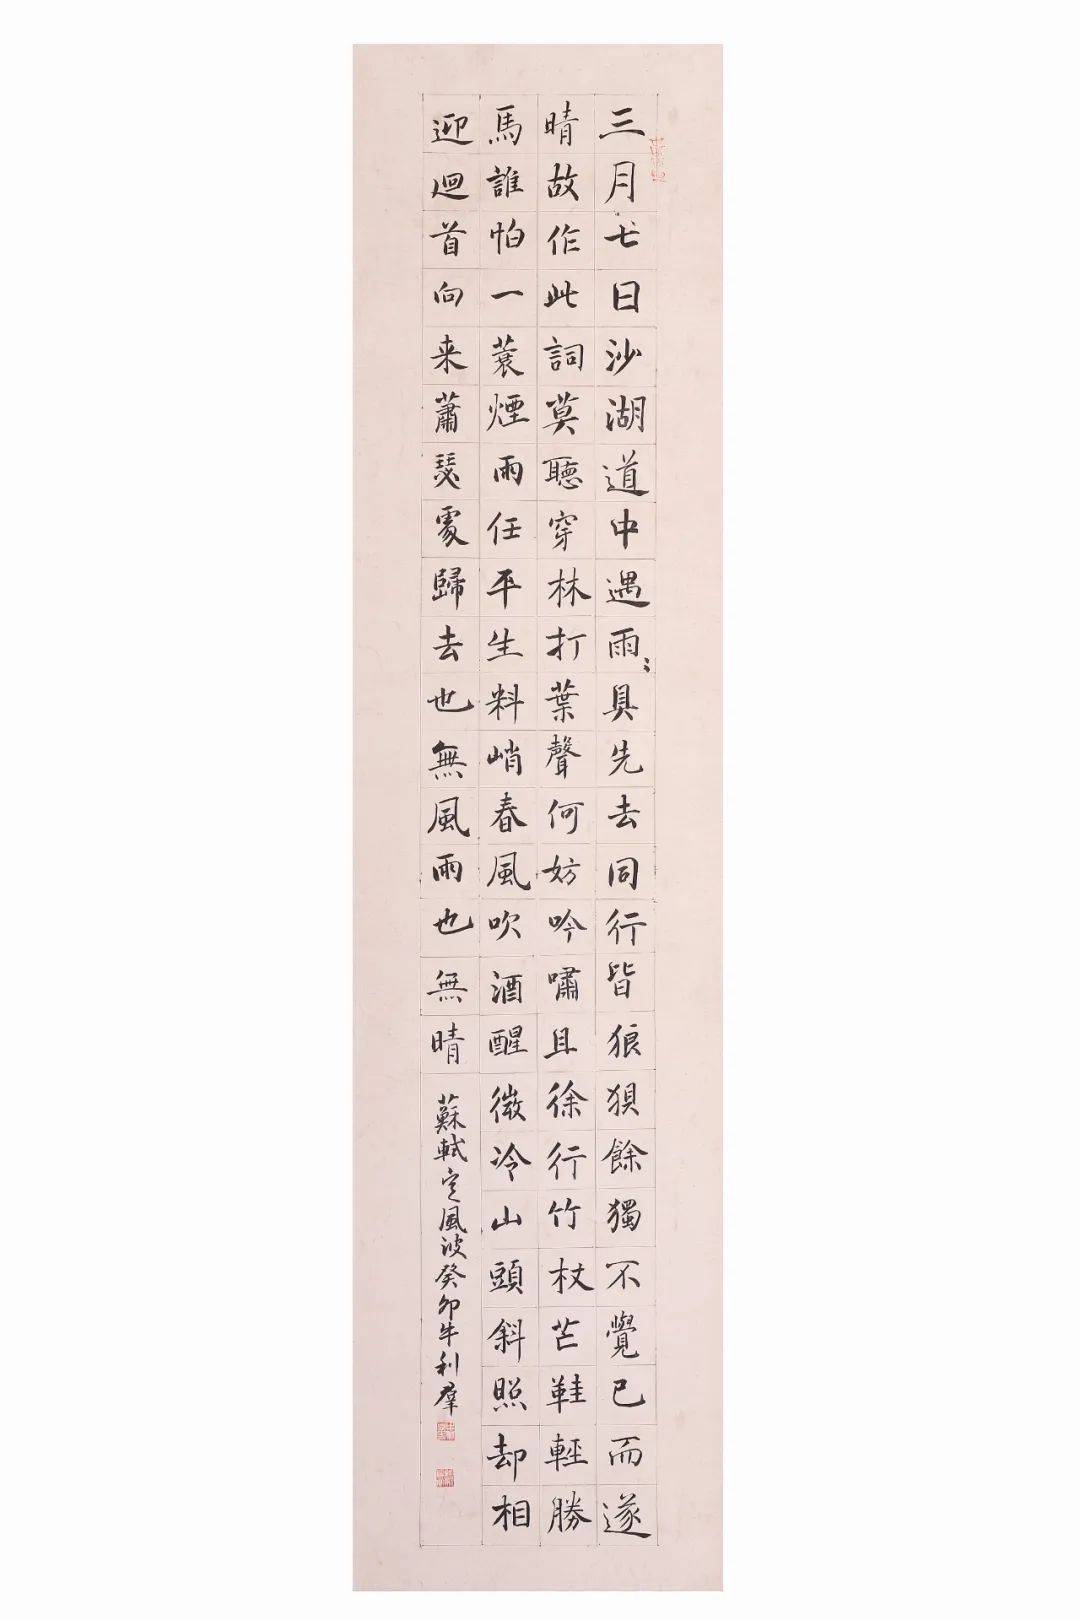 三月七日沙湖道中遇雨〻具先去同行皆狼狽餘獨不覺已而遂
晴故作此詞莫聽穿林打葉聲何妨吟嘯且徐行竹杖芒鞋輕勝
馬誰怕一蓑煙雨任平生料峭春風吹酒醒微冷山頭斜照却相
迎迴首向来蕭瑟處歸去也無風雨也無晴
蘇軾定風波癸卯牛利羣